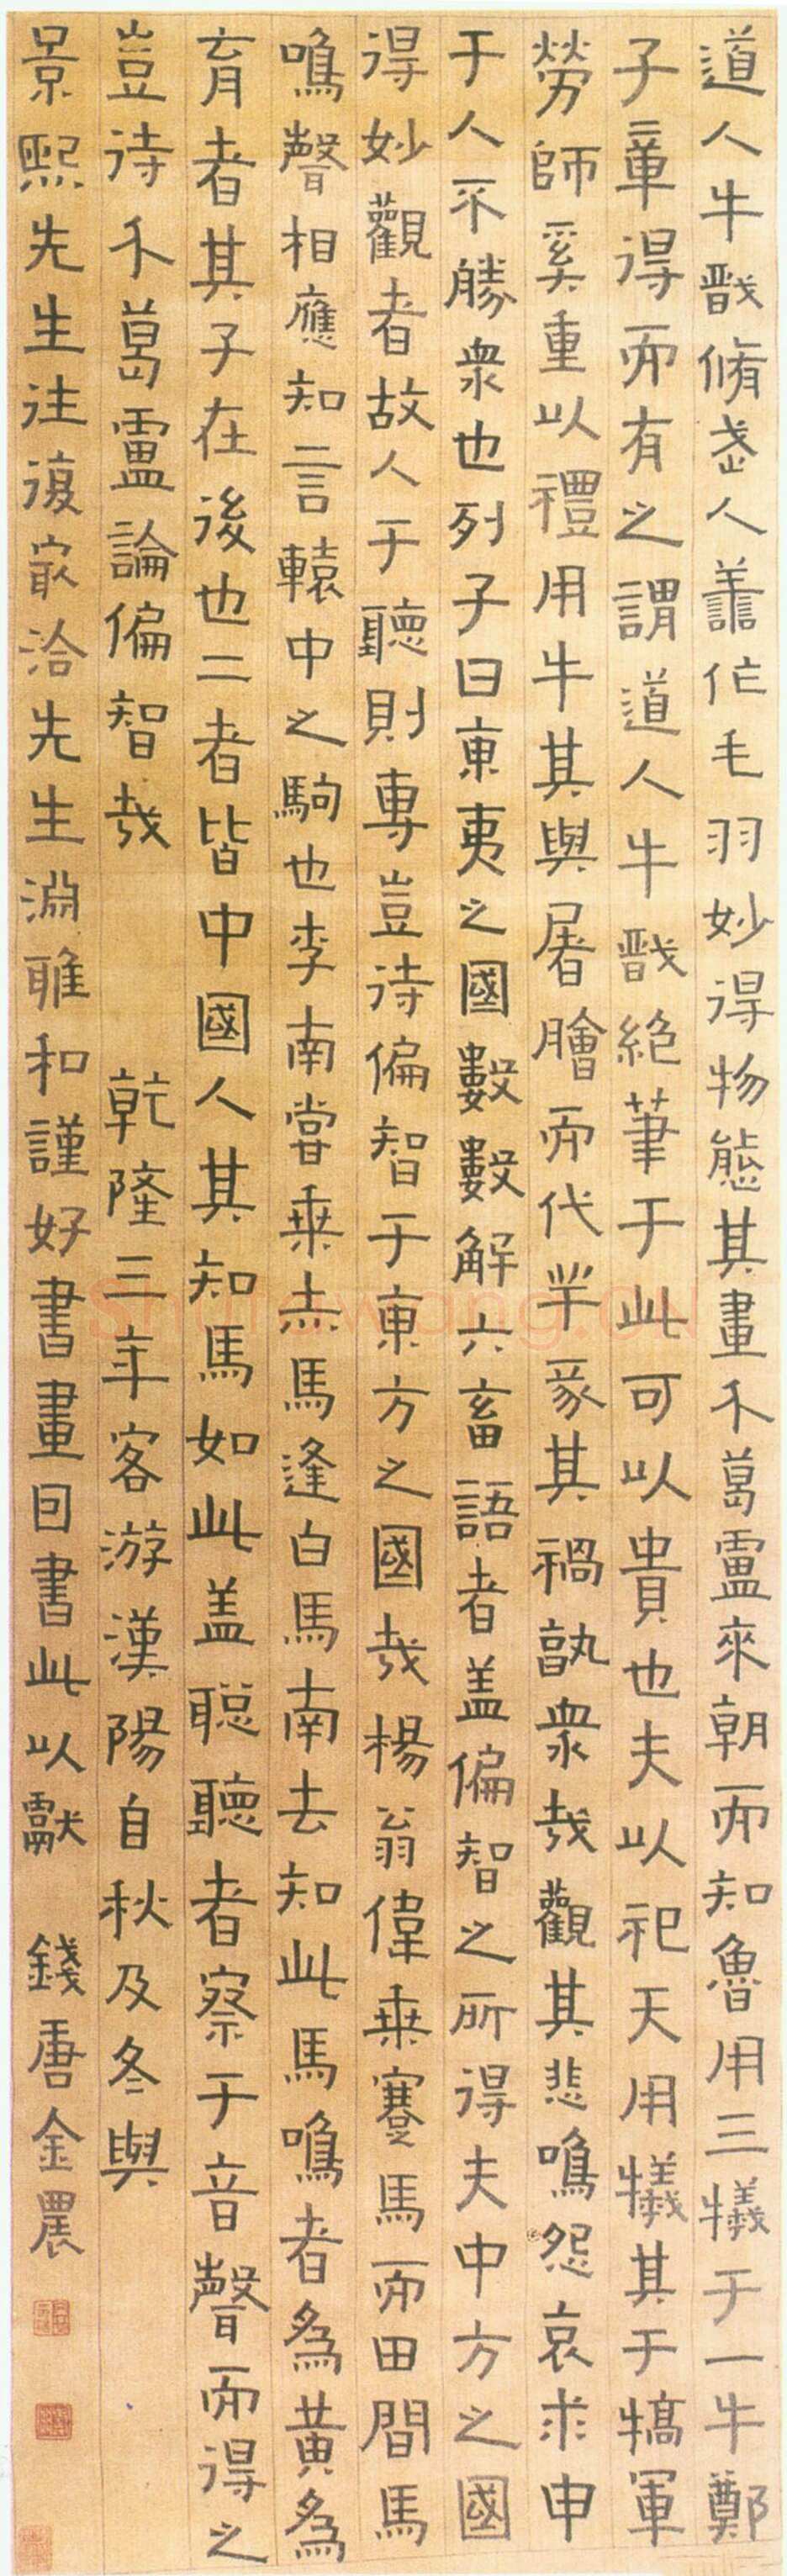 道人牛戩脩盏人善作毛羽妙得物態其畫介葛盧來朝而知魯用三犧于一牛鄭
子章得而有之謂道人牛戩絶筆于此可以貴也夫以祀天用犧其于犒軍
勞師奚重以禮用牛其與屠膾而代羊豕其禍孰衆哉觀其悲鳴怨哀求申
于人不勝衆也列子曰東夷之國數數解六畜語者盖偏智之所得夫中方之國
得妙觀者故人于聽則專豈待偏智于東方之國哉楊翁偉乗蹇馬而田間馬
鳴聲相應知言轅中之駒也李南嘗乗赤馬逢白馬南去知此馬鳴者為黄為
育者其子在後也二者皆中國人其知馬如此盖聪聽者察于音聲而得之
豈待介葛盧論偏智哉 乾隆三年客游漢陽自秋及冬與
景熙先生往復冣洽先生淵雅和謹好書畫回書此以獻 錢唐金農